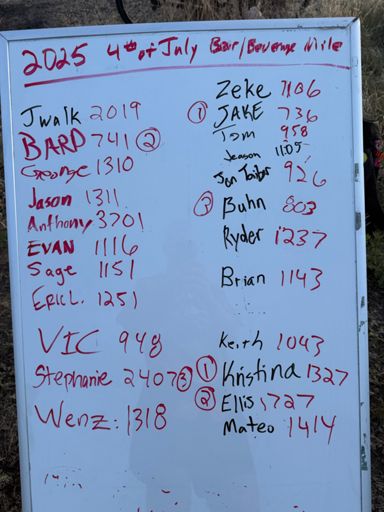 2025 4th of July Beer/Beverage Mile
Jwalk 2019
BARD 741 ②
George 1310
Jason 1311
Anthony 3701
EVAN 1116
Sage 1151
ERIC L. 1251
VIC 948
Stephanie 2407 ③
Wenz: 1318
Zeke 1106
① JAKE 736
Tom 958
Jeason 11:05
Jon 926
③ Buhn 803
Ryder 1237
Brian 1143
Keith 1043
① Kristina 1327
② Ellis 1727
Mateo 1414